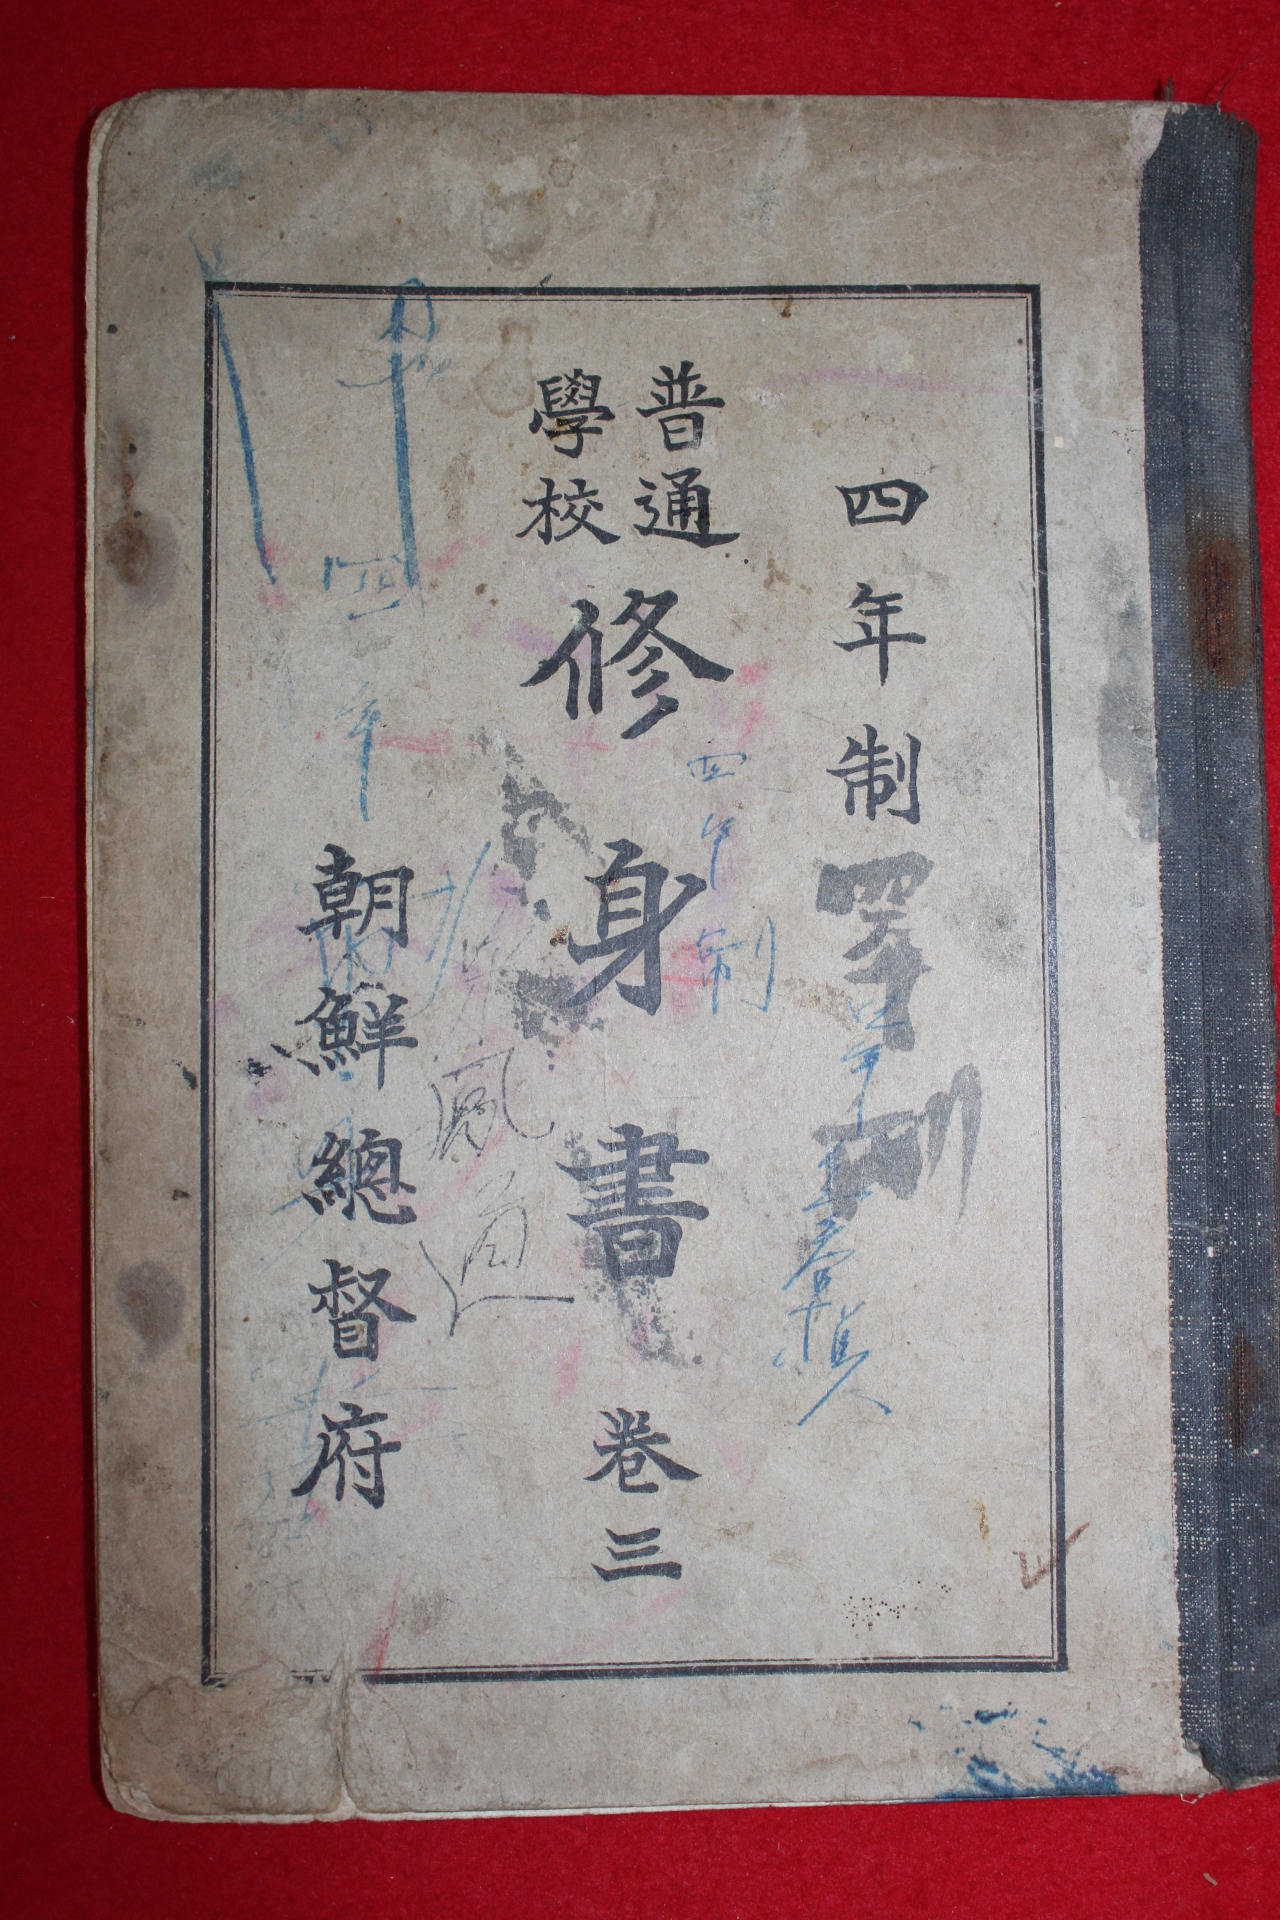 四年制
普通
學校
修身書 卷三
朝鮮總督府
四年制
四年
風通